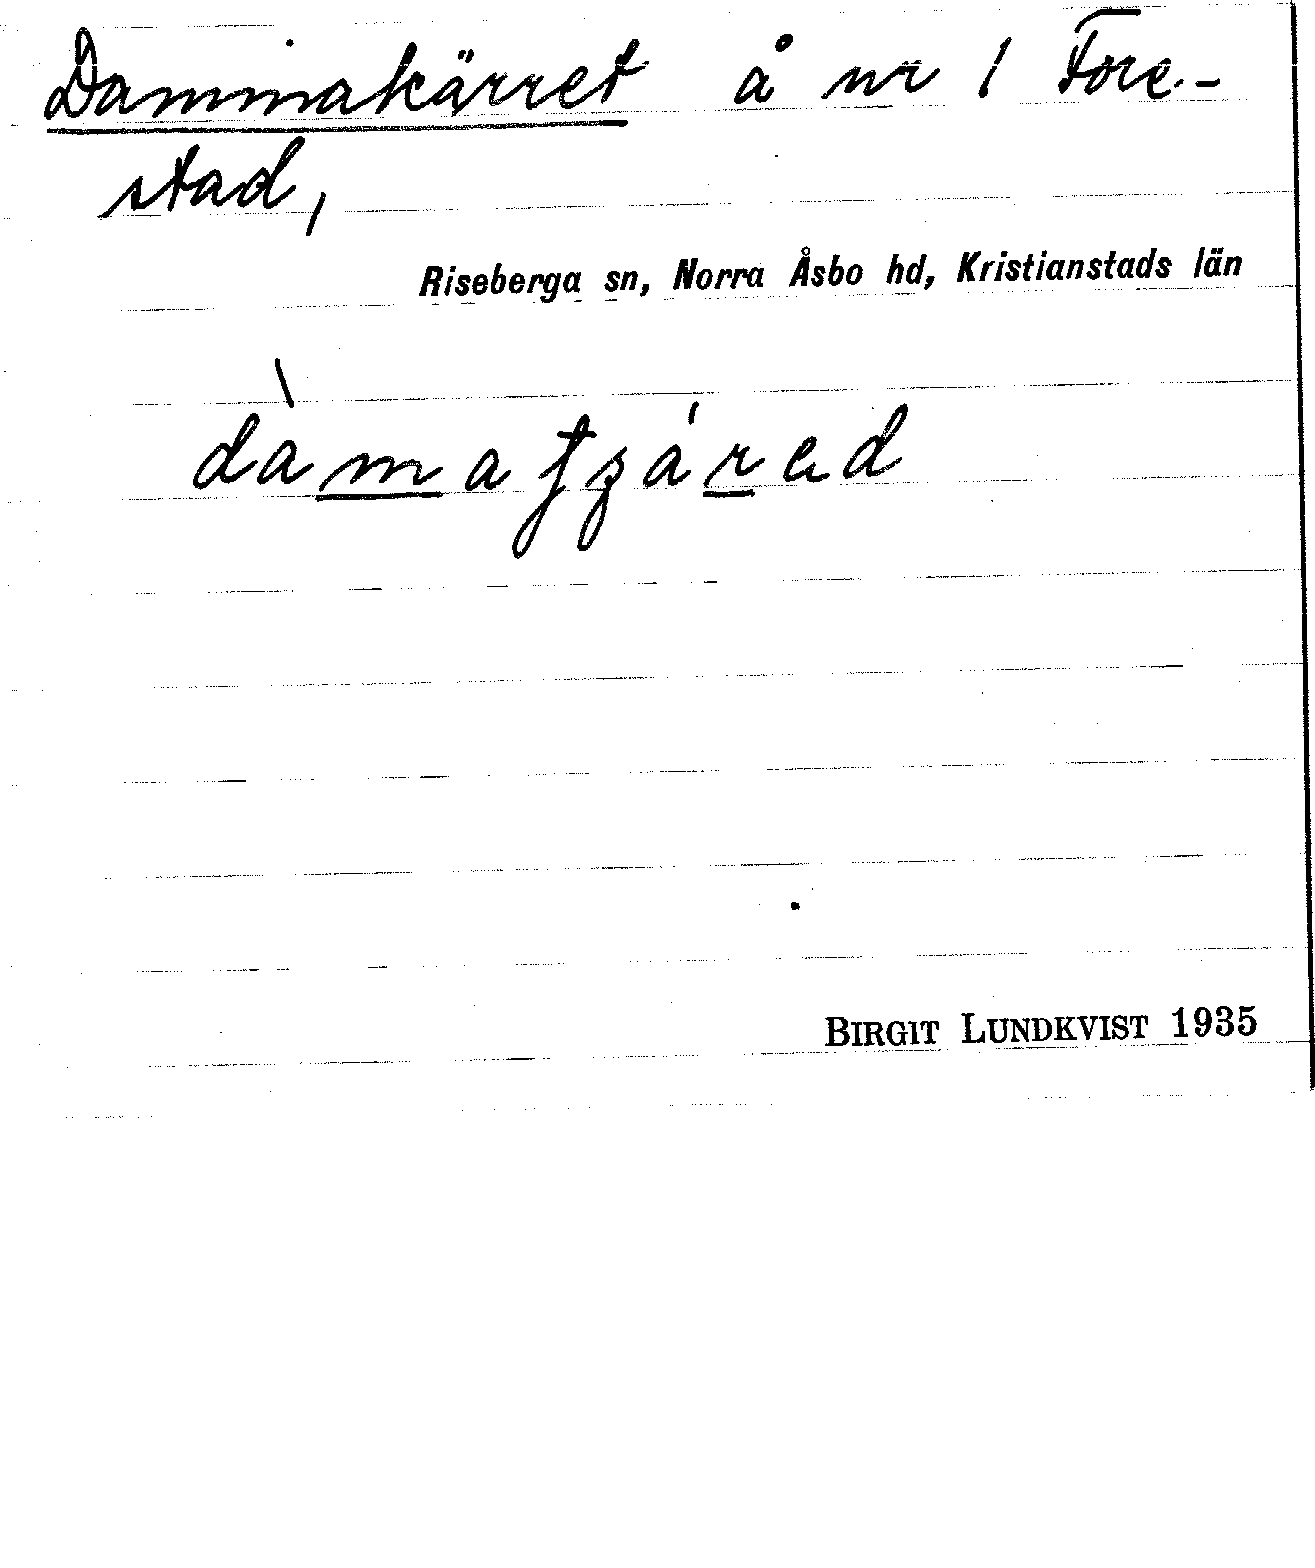 Dammakärret å nr 1 Fore-
stad,
Riseberga sn, Norra Åsbo hd, Kristianstads län
BIRGIT LUNDKVIST 1935